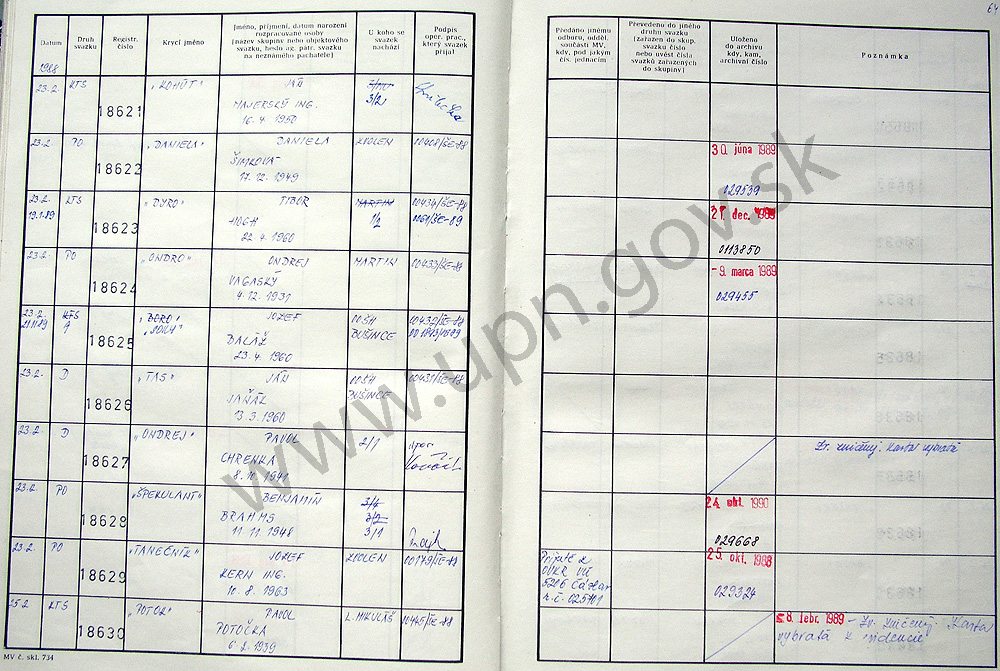 64
Datum
Druh svazku
Registr. číslo
Krycí jméno
Jméno, příjmení, datum narození rozpracované osoby (název skupiny nebo objektového svazku, heslo ag. pátr. svazku na neznámého pachatele)
U koho se svazek nachází
Podpis oper. prac., který svazek přijal
Předáno jinému odboru, odděl. součásti MV, kdy, pod jakým čís. jednacím
Převedeno do jiného druhu svazku (zařazen do skup. svazku číslo nebo uvést čísla svazků zařazených do skupiny)
Uloženo do archivu kdy, kam, archivní číslo
Poznámka
1988
23.2. KTS 18621 "KOHÚT" JÁN
MAJERSKÝ ING. 3/2
16. 4. 1950
23.2. PO 18622 "DANIELA" DANIELA ZVOLEN 00408/ŠE-88 30. júna 1989
17. 12. 1949 029539
23.2. KTS 18623 "DYRO" TIBOR MARTIN 00434/ŠE-88 dec. 1989
19.1.89 1/2 0113850
22. 4. 1960
23.2. PO 18624 "ONDRO" ONDREJ MARTIN 00433/ŠE-88 - 9. marca 1989
VAGASKÝ 029455
4. 12. 1931
23.2. KTS 18625 JOZEF OOŠH 00432/ŠE-88
A DUŠINCE
BALÁŽ
23. 4. 1960
23.2. D 18626 "TAS" JÁN OOŠH 00431/ŠE-88
DUŠINCE
13. 3. 1960
23.2. D 18627 "ONDREJ" PAVOL 2/1 Zv. zničený. Karta vybratá
CHRENKA
8. 10. 1941
23.2. PO 18628 "ŠPEKULANT" BENJAMÍN 24. okt. 1990
BRAHMS 3/2
11. 11. 1948 3/1 029668
23.2. PO 18629 "TANEČNÍK" JOZEF ZVOLEN 00179/ŠE-88 25. okt. 1988
KERN ING. 029324
10. 8. 1963
25.2. KTS 18630 "POTOK" PAVOL L. MIKULÁŠ 00445/ŠE-88 8. febr. 1989 - Zv. zničený Karta
POTOČKA vybratá z evidencie
6. 2. 1939
MV č. skl. 734
www.upn.gov.sk